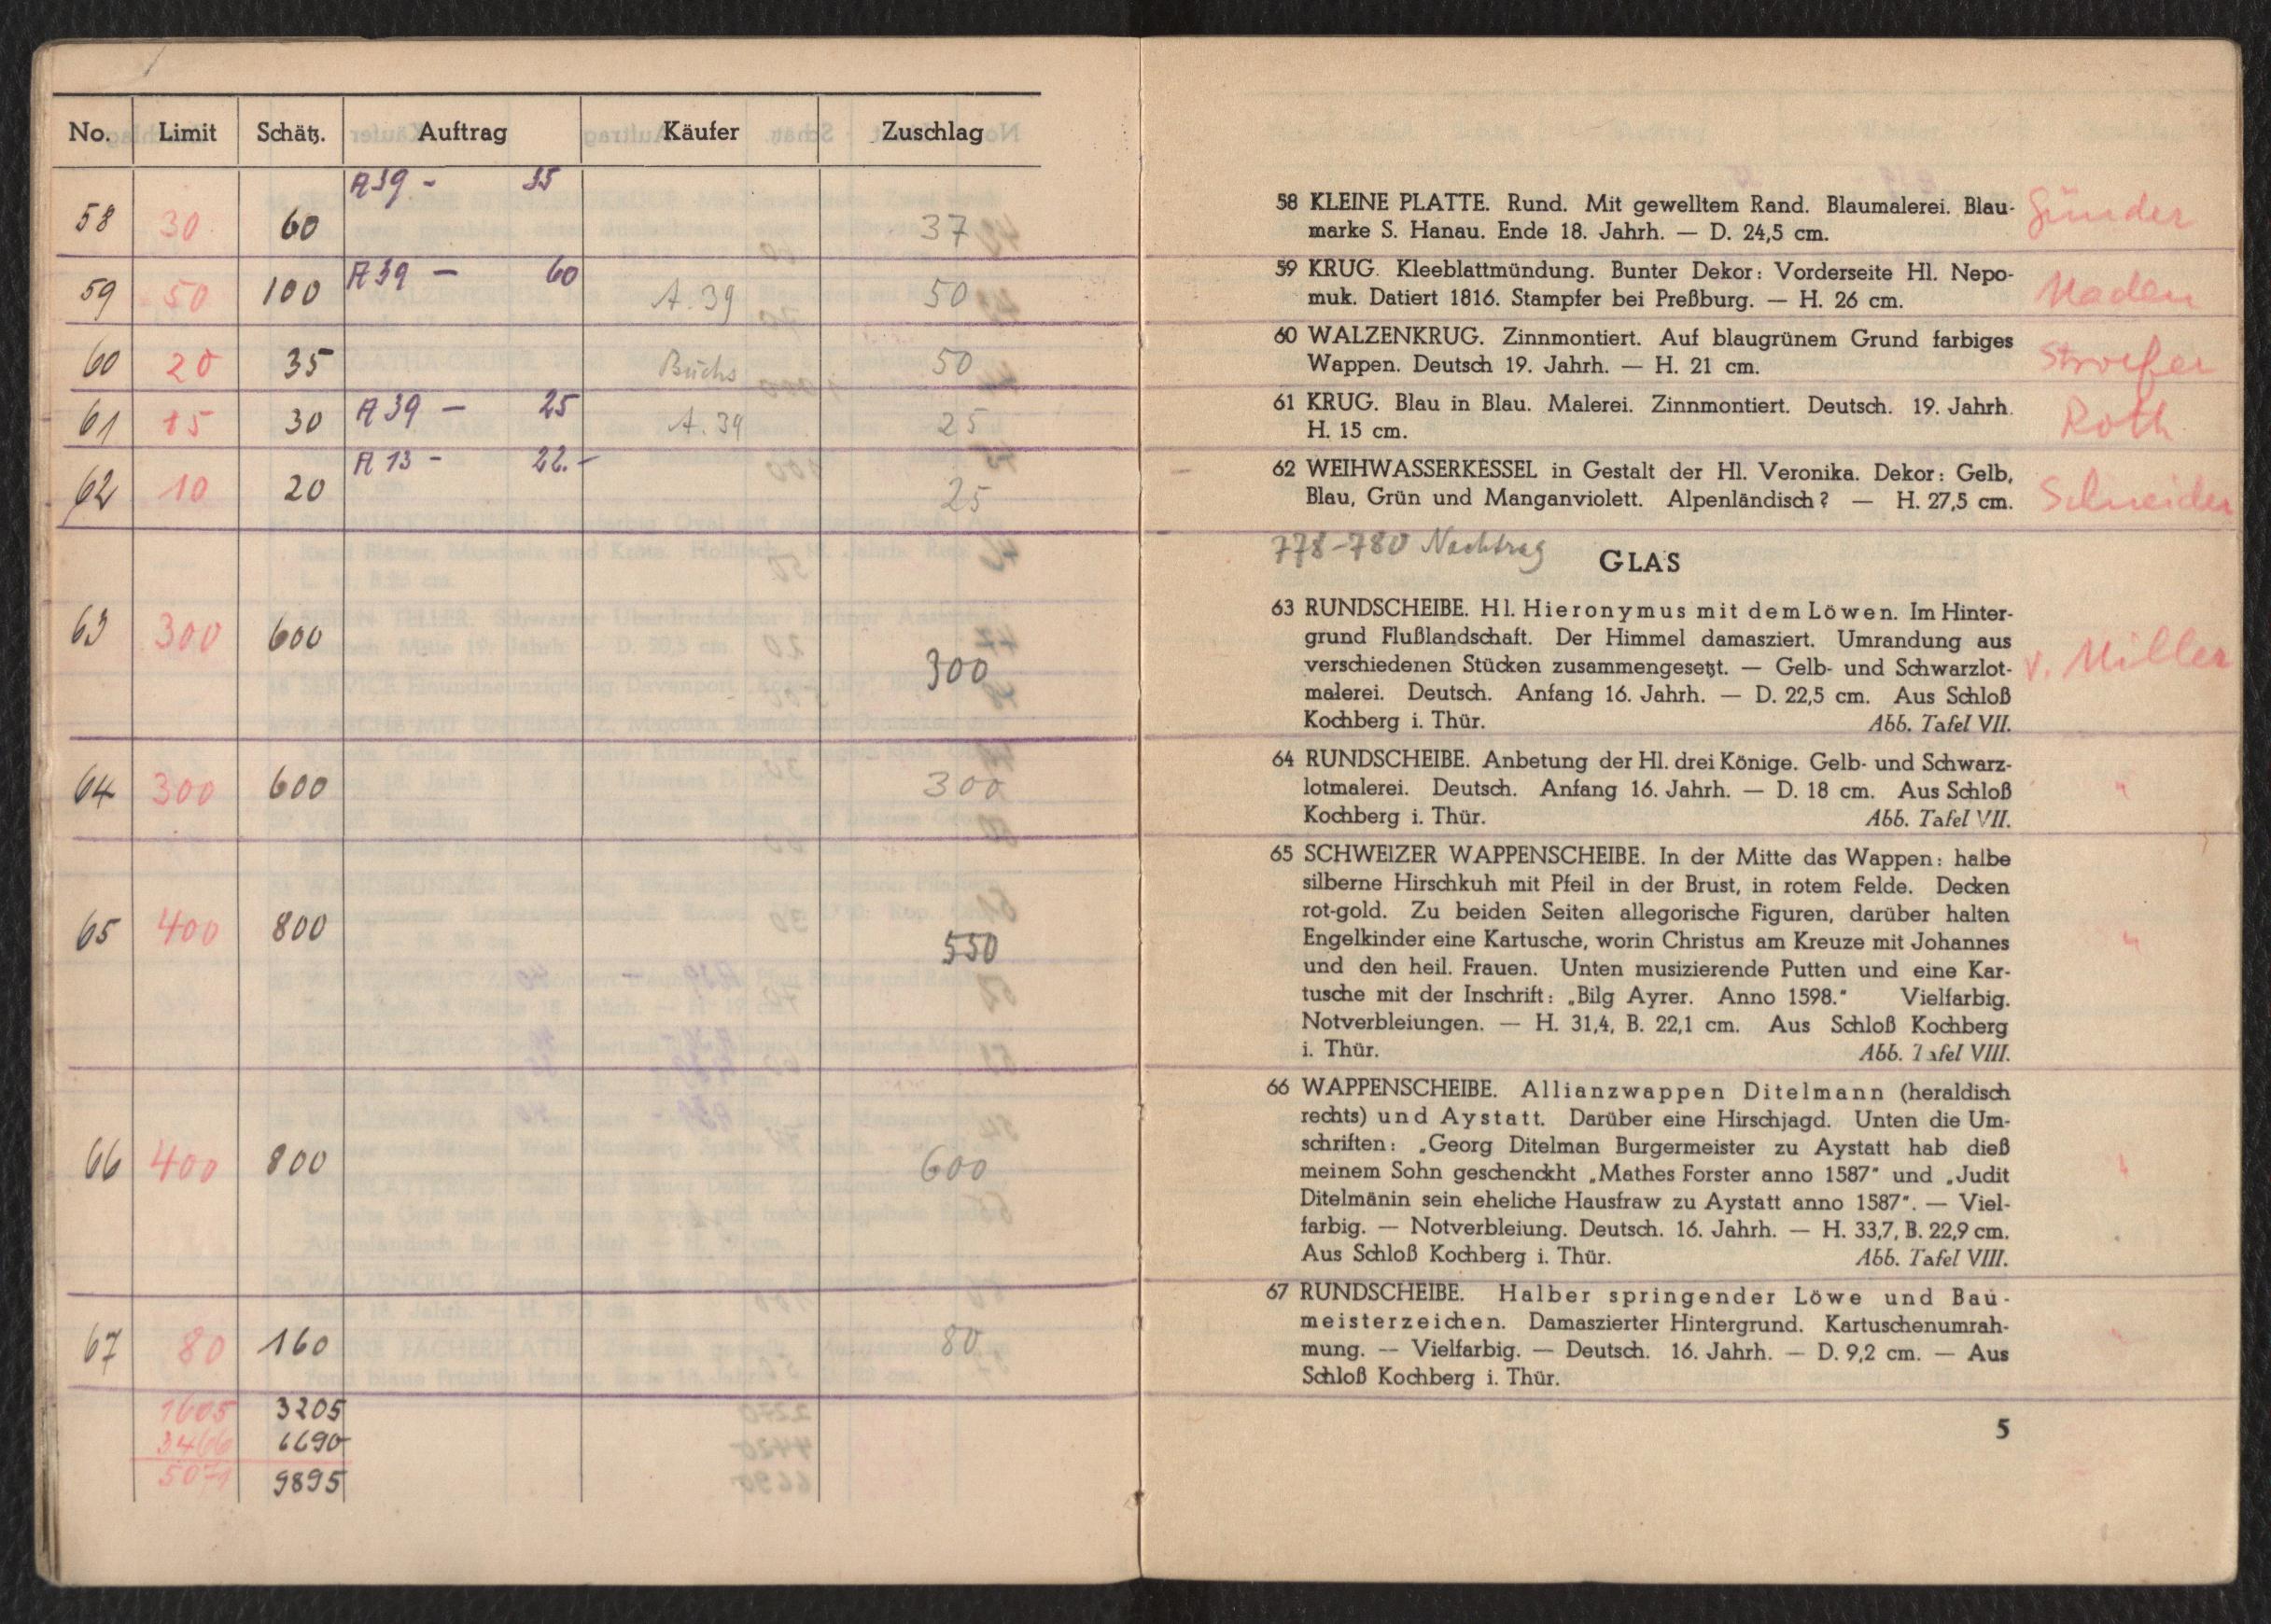 No. Limit Schätz. Auftrag Käufer Zuschlag
A39 - 35
58 30 60 37
A39 - 60
59 50 100 A. 39 50
60 20 35 Buchs 50
61 15 30 A39 - 25 A. 39 25
A13 - 22.-
62 10 20 25
63 300 600 300
64 300 600 300
65 400 800 550
66 400 800 600
67 80 160 80
1605 3205
6690
9895
58 KLEINE PLATTE. Rund. Mit gewelltem Rand. Blaumalerei. Blau- Günder
marke S. Hanau. Ende 18. Jahrh. — D. 24,5 cm.
59 KRUG. Kleeblattmündung. Bunter Dekor: Vorderseite Hl. Nepo-
muk. Datiert 1816. Stampfer bei Preßburg. — H. 26 cm. Maden
60 WALZENKRUG. Zinnmontiert. Auf blaugrünem Grund farbiges
Wappen. Deutsch 19. Jahrh. — H. 21 cm.
61 KRUG. Blau in Blau. Malerei. Zinnmontiert. Deutsch. 19. Jahrh. Roth
H. 15 cm.
62 WEIHWASSERKESSEL in Gestalt der Hl. Veronika. Dekor: Gelb,
Blau, Grün und Manganviolett. Alpenländisch? — H. 27,5 cm. Schneider
778-780 Nachtrag
GLAS
63 RUNDSCHEIBE. Hl. Hieronymus mit dem Löwen. Im Hinter-
grund Flußlandschaft. Der Himmel damasziert. Umrandung aus
verschiedenen Stücken zusammengesetzt. — Gelb- und Schwarzlot- v. Miller
malerei. Deutsch. Anfang 16. Jahrh. — D. 22,5 cm. Aus Schloß
Kochberg i. Thür. Abb. Tafel VII.
64 RUNDSCHEIBE. Anbetung der Hl. drei Könige. Gelb- und Schwarz-
lotmalerei. Deutsch. Anfang 16. Jahrh. — D. 18 cm. Aus Schloß "
Kochberg i. Thür. Abb. Tafel VII.
65 SCHWEIZER WAPPENSCHEIBE. In der Mitte das Wappen: halbe
silberne Hirschkuh mit Pfeil in der Brust, in rotem Felde. Decken
rot-gold. Zu beiden Seiten allegorische Figuren, darüber halten
Engelkinder eine Kartusche, worin Christus am Kreuze mit Johannes "
und den heil. Frauen. Unten musizierende Putten und eine Kar-
tusche mit der Inschrift: „Bilg Ayrer. Anno 1598.“ Vielfarbig.
Notverbleiungen. — H. 31,4, B. 22,1 cm. Aus Schloß Kochberg
i. Thür. Abb. Tafel VIII.
66 WAPPENSCHEIBE. Allianzwappen Ditelmann (heraldisch
rechts) und Aystatt. Darüber eine Hirschjagd. Unten die Um-
schriften: „Georg Ditelman Burgermeister zu Aystatt hab dieß
meinem Sohn geschenckht „Mathes Forster anno 1587“ und „Judit "
Ditelmänin sein eheliche Hausfraw zu Aystatt anno 1587“. — Viel-
farbig. — Notverbleiung. Deutsch. 16. Jahrh. — H. 33,7, B. 22,9 cm.
Aus Schloß Kochberg i. Thür. Abb. Tafel VIII.
67 RUNDSCHEIBE. Halber springender Löwe und Bau-
meisterzeichen. Damaszierter Hintergrund. Kartuschenumrah- "
mung. — Vielfarbig. — Deutsch. 16. Jahrh. — D. 9,2 cm. — Aus
Schloß Kochberg i. Thür.
5